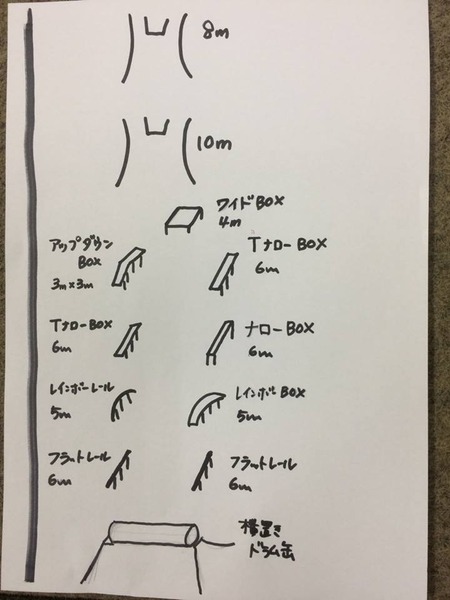 8m
10m
ワイドBOX
4m
アップダウン
BOX
3m×3m
TナローBOX
6m
TナローBOX
6m
ナローBOX
6m
レインボーレール
5m
レインボーBOX
5m
フラットレール
6m
フラットレール
6m
横置き
ドラム缶